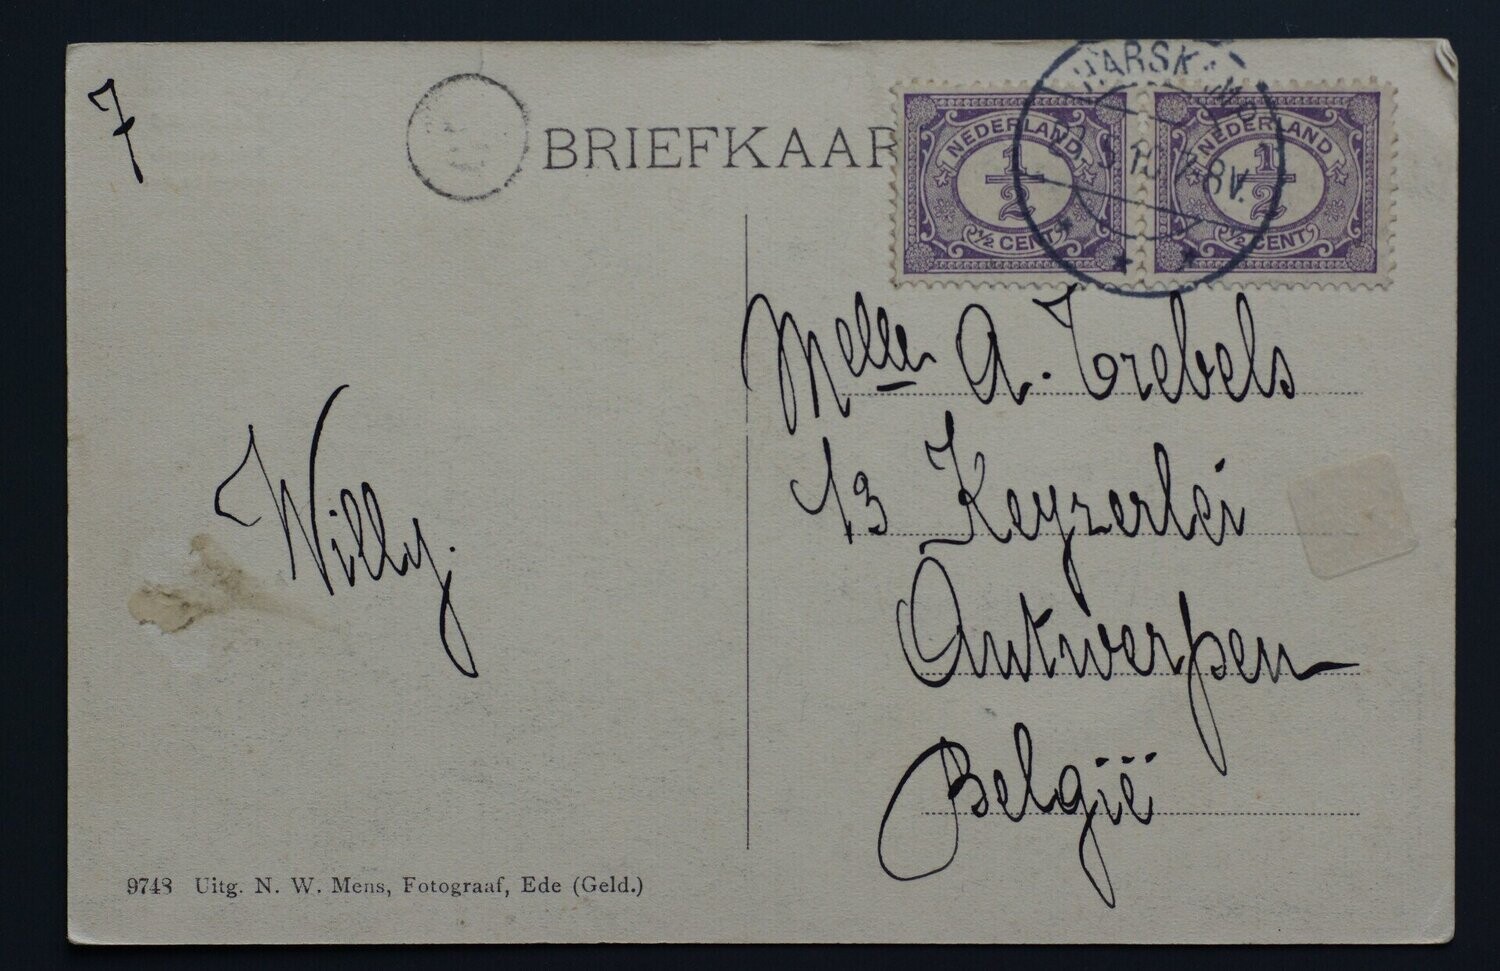 7
BRIEFKAAR
NEDERLAND
1/2
1/2 CENT
NEDERLAND
1/2
1/2 CENT
7-8V.
Melle A. Trebels
13 Keyzerlei
Antwerpen
Belgïë
Willy.
9748 Uitg. N. W. Mens, Fotograaf, Ede (Geld.)